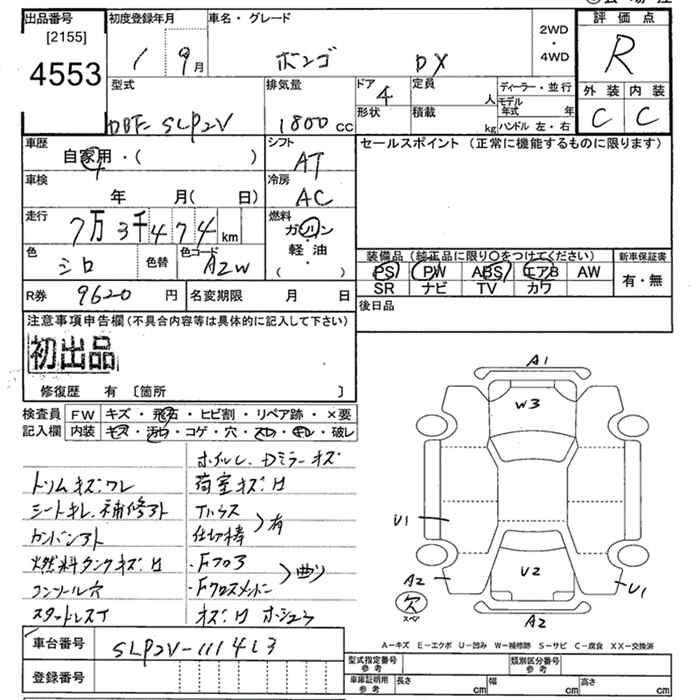 出品番号
[2155]
4553
初度登録年月
1 9月
車名・グレード
ボンゴ DX
2WD
・
4WD
評価点
R
外装 内装
C C
型式
DBF-SLP2V
排気量
1800 cc
ドア
4
形状
定員
人
積載
kg
ディーラー・並行
モデル年式 年
ハンドル 左・右
車歴
自家用・( )
シフト
AT
セールスポイント(正常に機能するものに限ります)
車検
年 月( 日)
冷房
AC
走行
7万3千474km
燃料
ガソリン
軽・油
( ・ )
色
シロ
色替
色コード
A2W
装備品(純正品に限り○をつけてください)
新車保証書
PS PW ABS エアB AW
SR ナビ TV カワ
有・無
R券 9620 円
名変期限 月 日
後日品
注意事項申告欄(不具合内容等は具体的に記入して下さい)
初出品
修復歴 有 〔箇所 〕
検査員
記入欄
FW キズ・飛石・ヒビ割・リペア跡・×要
内装 キズ・汚れ・コゲ・穴・スレ・キレ・破レ
ホイルし、Dミラーキズ
トリムキズ、ワレ
荷室キズ、サ
シートキレ、補修アト
有
カンバンアト
仕切棒
燃料タンクキズ、サ
・Fフロア
曲り
コンソール穴
・Fクロスメンバー
スタッドレスT
A1
W3
U1
A2
U2
U1
欠
スペア
A2
A-キズ E-エクボ U-凹み W-補修跡 S-サビ C-腐食 XX-交換済
車台番号
SLP2V-111413
登録番号
型式指定番号
参考
類別区分番号
参考
車庫証明用
参考
長さ cm
幅 cm
高さ cm